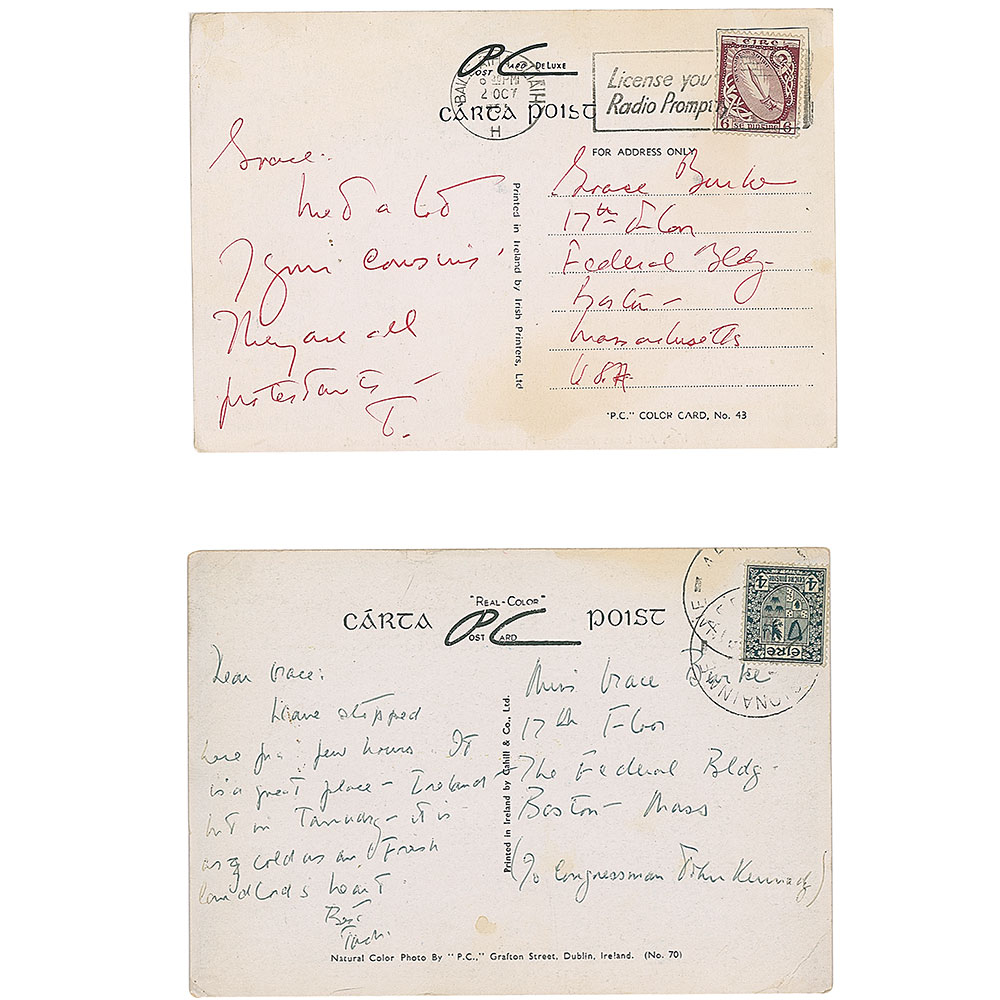 PC
POST CARD DE LUXE
CÁRTA POIST
2 OCT
H
License you
Radio Promptly
ÉIRE
6 SÉ PINGINE 6
FOR ADDRESS ONLY
Grace:
Met a lot
of your cousins
They are all
protestants –
T.
Printed in Ireland by Irish Printers, Ltd
Grace Burke
17th Floor
Federal Bldg-
Boston –
Massachusetts
U.S.A.
"P.C." COLOR CARD, No. 43
"REAL-COLOR"
CÁRTA PC POIST
POST CARD
4 4
éire
Dear Grace:
Have stopped
here for a few hours. It
is a great place – Ireland –
but in January – it is
as cold as an Irish
landlord's heart.
Best
Jack.
Printed in Ireland by Cahill & Co., Ltd.
Miss Grace Burke
17th Floor
The Federal Bldg-
Boston – Mass
(c/o Congressman John Kennedy)
Natural Color Photo By "P.C.," Grafton Street, Dublin, Ireland. (No. 70)